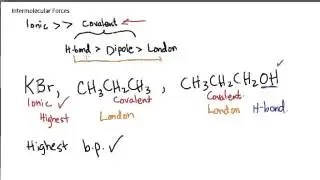 Intermolecular Forces
Ionic >> Covalent
H-bond > Dipole > London
KBr, CH₃CH₂CH₃, CH₃CH₂CH₂OH
Ionic Covalent Covalent
Highest London London H-bond.
Highest b.p.